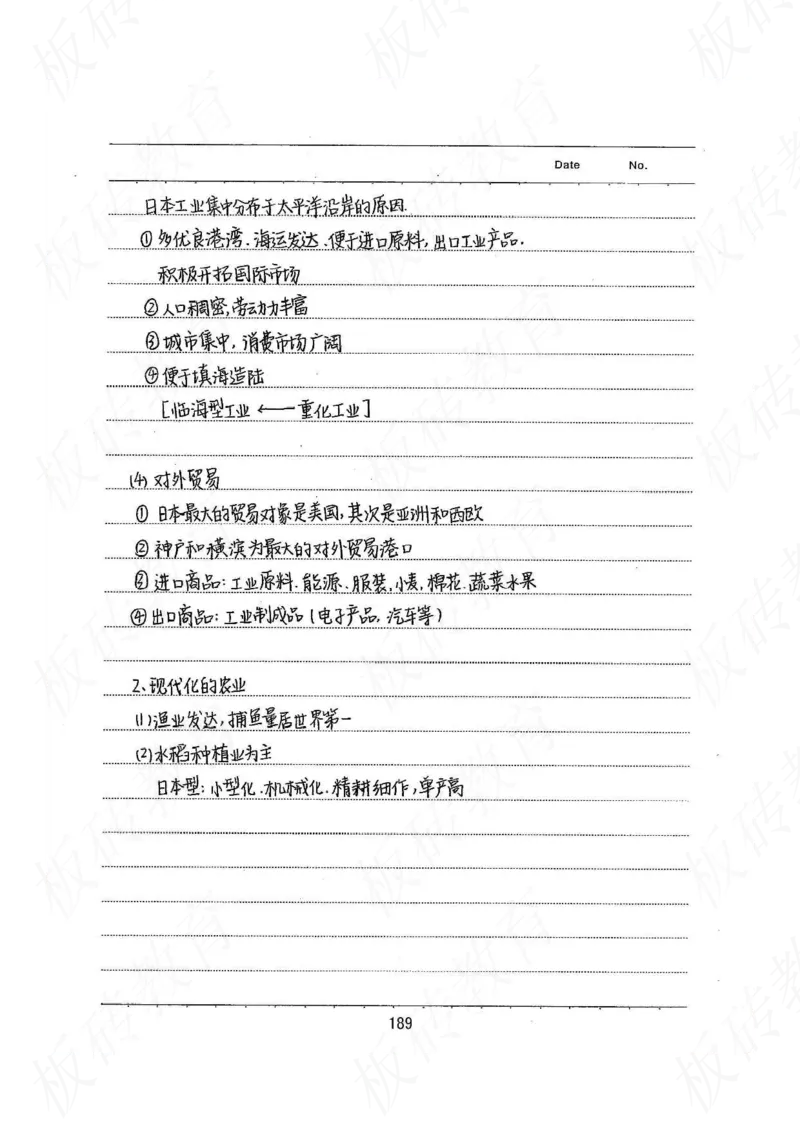 Date No.
日本工业集中分布于太平洋沿岸的原因.
①多优良港湾.海运发达.便于进口原料,出口工业产品.
积极开拓国际市场
②人口稠密,劳动力丰富
③城市集中,消费市场广阔
④便于填海造陆
[临海型工业 ← 重化工业]
(4) 对外贸易
① 日本最大的贸易对象是美国,其次是亚洲和西欧
② 神户和横滨为最大的对外贸易港口
③ 进口商品:工业原料.能源.服装.小麦,棉花.蔬菜水果
④ 出口商品:工业制成品(电子产品,汽车等)
2、现代化的农业
(1)渔业发达,捕鱼量居世界第一
(2)水稻种植业为主
日本型:小型化.机械化.精耕细作,单产高
189
板砖教育